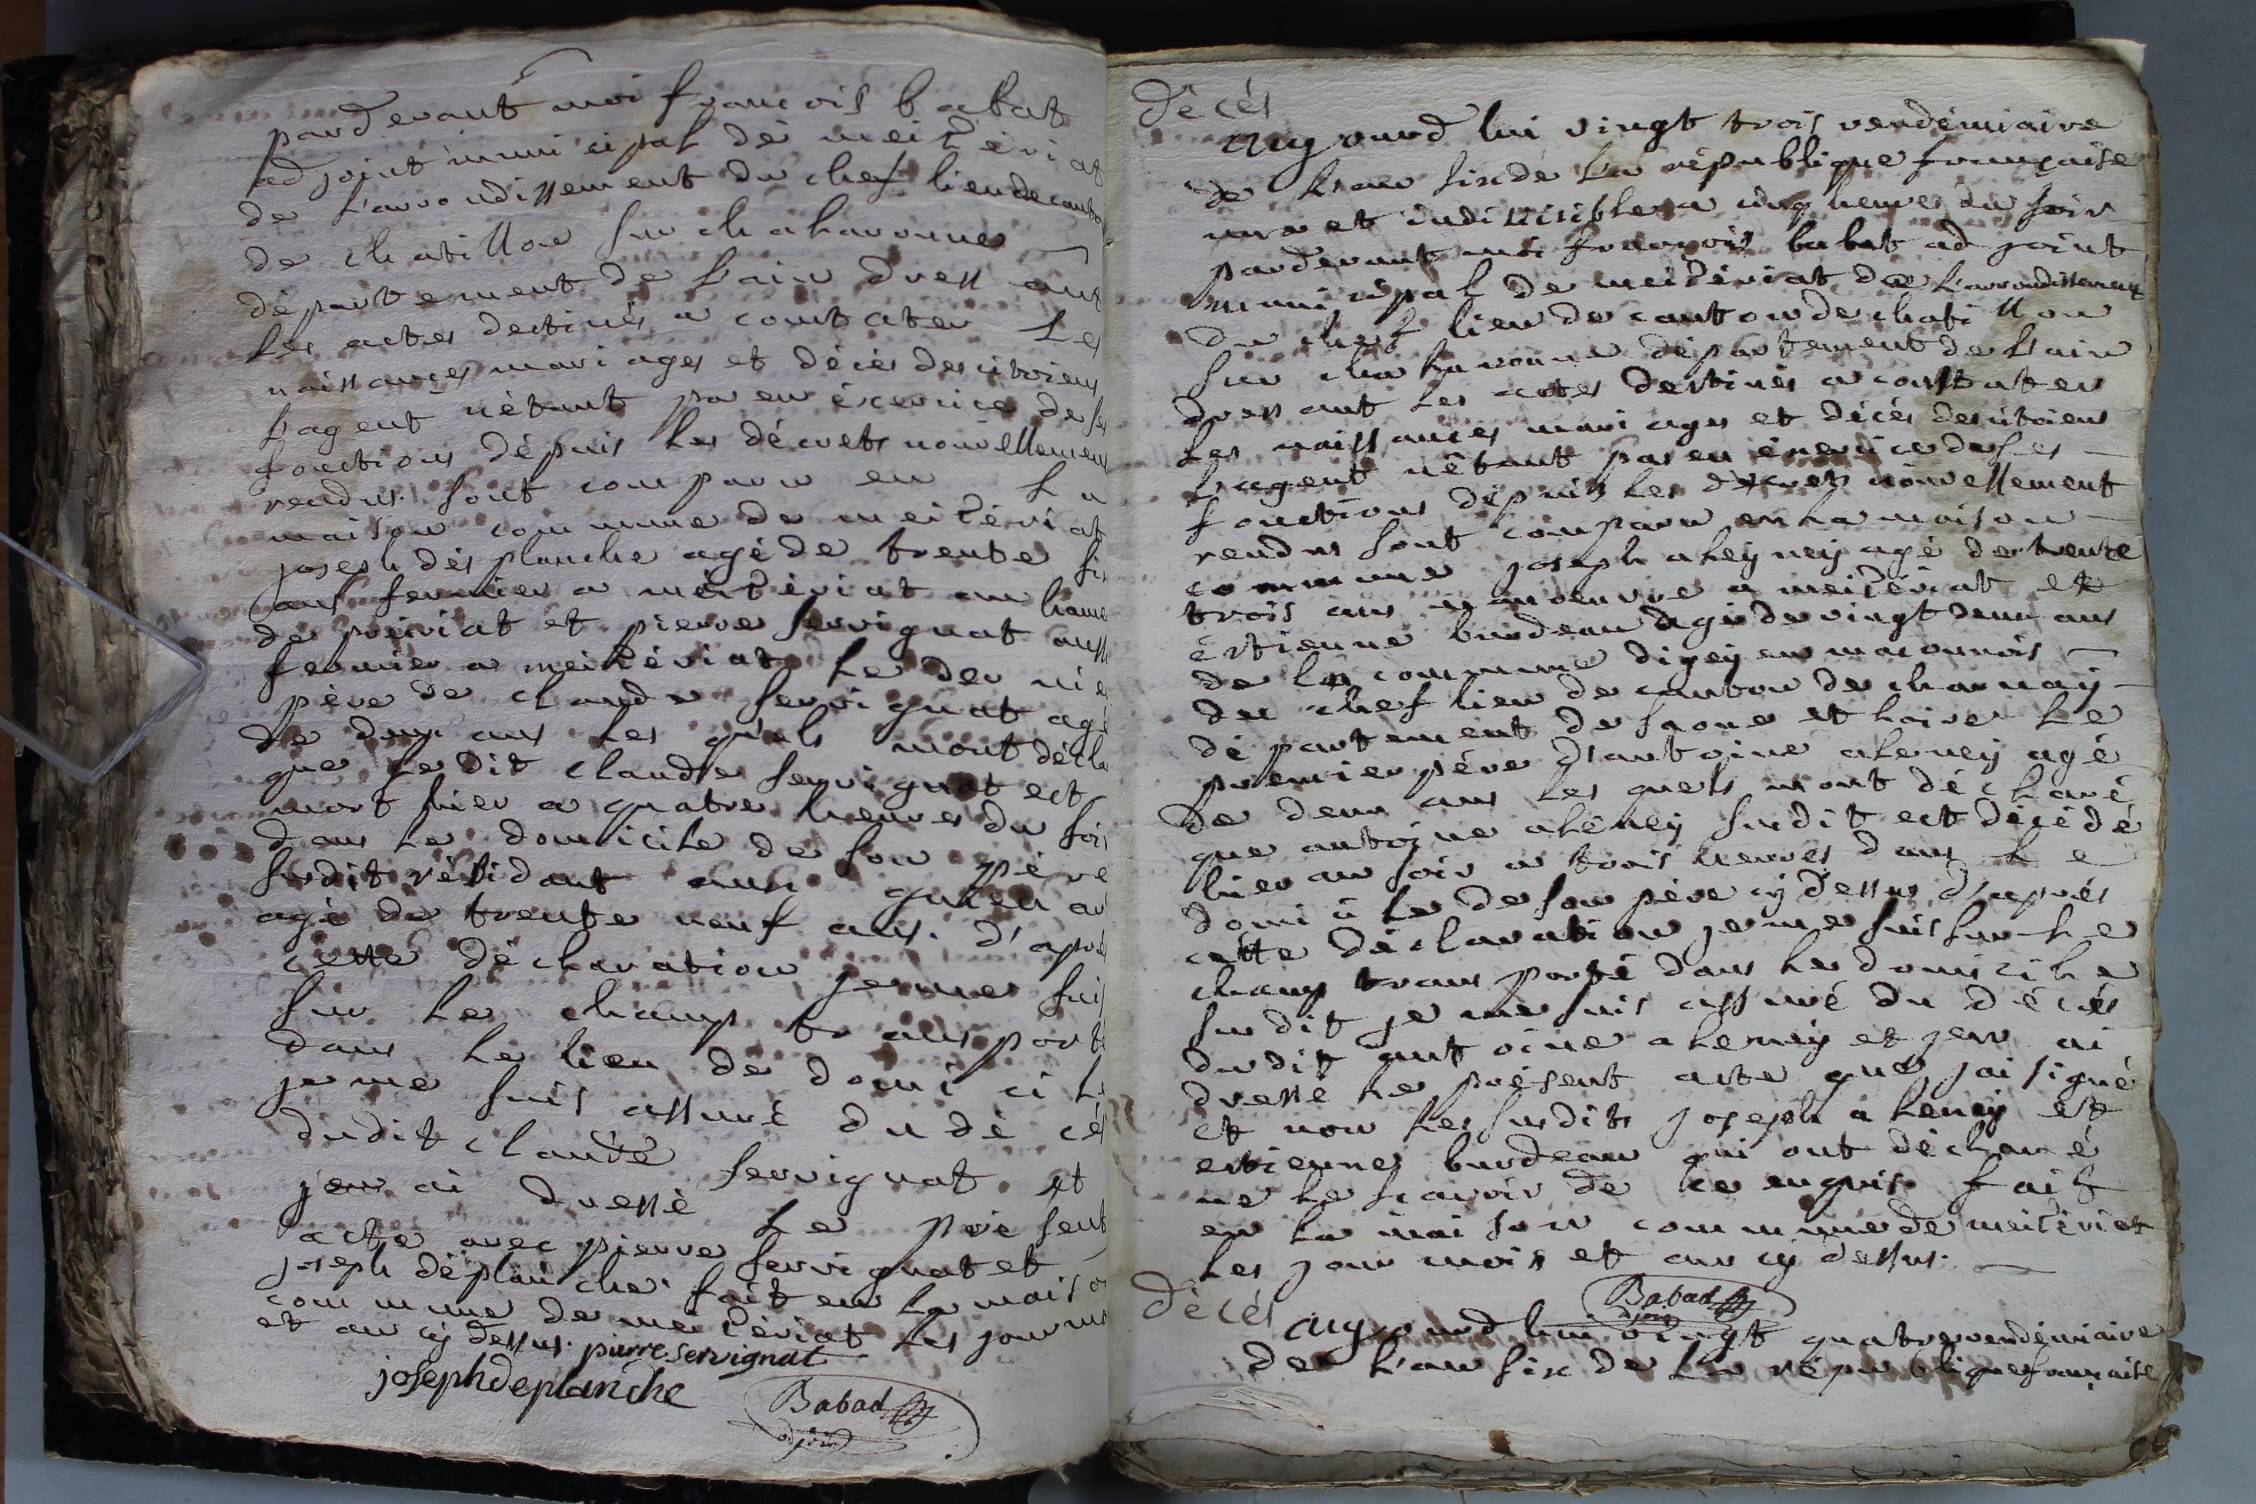 pardevant moi francois babat
adjoint municipal de meiteriat
de l'arrondissement du chef lieu de canto
de chatillon sur chalaronne
département de l'ain dressant
les actes destinés a constater les
naissances mariages et décès des citoiens
l'agent n'étant pas en éxercice de ses
fonctions dépuis les décrets nouvellement
rendus. sont comparu en la
maison commune de meitériat
joseph désplanche agé de trente six
ans fermier a méitériat au hame
de préiriat et pierre servignat aussi
fermier a meitériat le dernie
père de claude servignat agé
de deux ans les quels mont décla
que ledit claude servignat est
mort hier a quatre heures du soir
dans le domicile de son père
susdit résidant aussi
agé de trente neuf ans. d'aprè
cette déclaration je me suis
sur le champ transporté
dans le lieu de domicile
je me suis assuré du décés
dudit claude servignat et
jen ai dressé le présent
acte avec pierre servignat et
joseph déplanche. fait en la maiso
commune de meitériat les jour mo
et an cy dessus. pierre servignat
joseph deplanche
Babad
adjoin
décés
aujourdhui vingt trois vendémiaire
de l'an six de la république française
une et indivisible a cinq heures du soir
pardevant moi francois babat adjoint
municipal de meitériat de l'arrondissement
du chef lieu de canton de chatillon
sur chalaronne département de l'ain
dressant les actes destinés a constater
les naissances mariages et décés des citoiens
l'agent nêtant pas en éxercice de ses
fonctions dépuis les décrets nouvellement
rendus sont comparu en la maison
commune joseph aleyney agé de trente
trois ans manoeuvre a meitériat et
éstienne burdeau agé de vingt deux ans
de la commune digey en maconnois
du chef lieu de canton de charnay
département de saone et loire le
premier père d'antoine aleney agé
de deux ans les quels mont déclaré
que antoine aléney susdit est décédé
hier au soir a trois heures dans le
domicile de son père cy dessus d'après
cette déclaration je me suis sur le
champ transporté dans le domicile
susdit je me suis assuré du décés
dudit antoine aleney et jen ai
dressé le présent acte que jai signé
et non les susdits joseph aleney et
estienne burdeau qui ont déclaré
ne le scavoir de ce enquis fait
en la maison commune de meitériat
les jour mois et an cy dessus.
Babad
adjoin
décés
aujourdhui vingt quatre vendémiaire
de l'an six de la république française